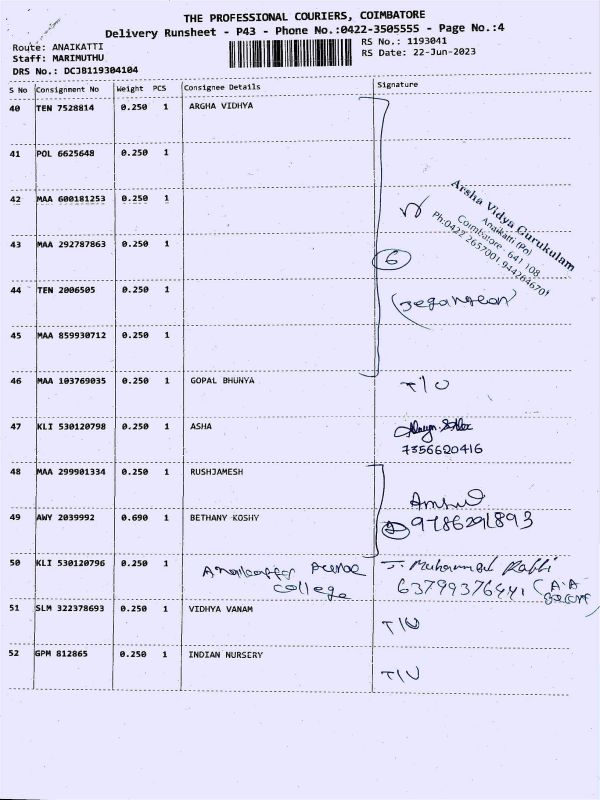 THE PROFESSIONAL COURIERS, COIMBATORE
Delivery Runsheet - P43 - Phone No.:0422-3505555 - Page No.:4
Route: ANAIKATTI
RS No.: 1193041
Staff: MARIMUTHU
RS Date: 22-Jun-2023
DRS No.: DCJB119304104
S No Consignment No Weight PCS Consignee Details Signature
40 TEN 7528814 0.250 1 ARGHA VIDHYA
41 POL 6625648 0.250 1
42 MAA 600181253 0.250 1
Arsha Vidya Gurukulam
Anaikatti (Po)
Coimbatore - 641 108
Ph:0422 2657001, 9442646701
43 MAA 292787863 0.250 1
6
44 TEN 2006505 0.250 1
45 MAA 859930712 0.250 1
46 MAA 103769035 0.250 1 GOPAL BHUNYA T/U
47 KLI 530120798 0.250 1 ASHA
7356620416
48 MAA 299901334 0.250 1 RUSHJAMESH
49 AWY 2039992 0.690 1 BETHANY KOSHY
50 KLI 530120796 0.250 1 College J. Muhammad Rabbi
51 SLM 322378693 0.250 1 VIDHYA VANAM T/U
52 GPM 812865 0.250 1 INDIAN NURSERY T/U